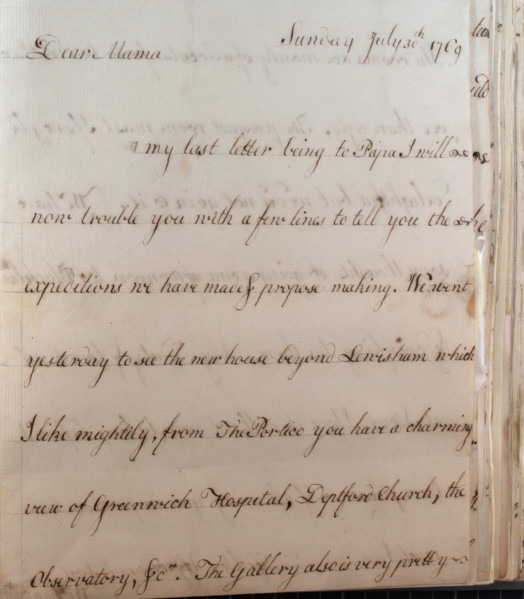 Sunday July 30th 1769
Dear Mama
my last letter being to Papa I will
now trouble you with a few lines to tell you the
expeditions we have made & propose making. We went
yesterday to see the new house beyond Lewisham which
I like mightily, from The Portico you have a charming
view of Greenwich Hospital, Deptford Church, the
Observatory, &ca. The Gallery also is very pretty